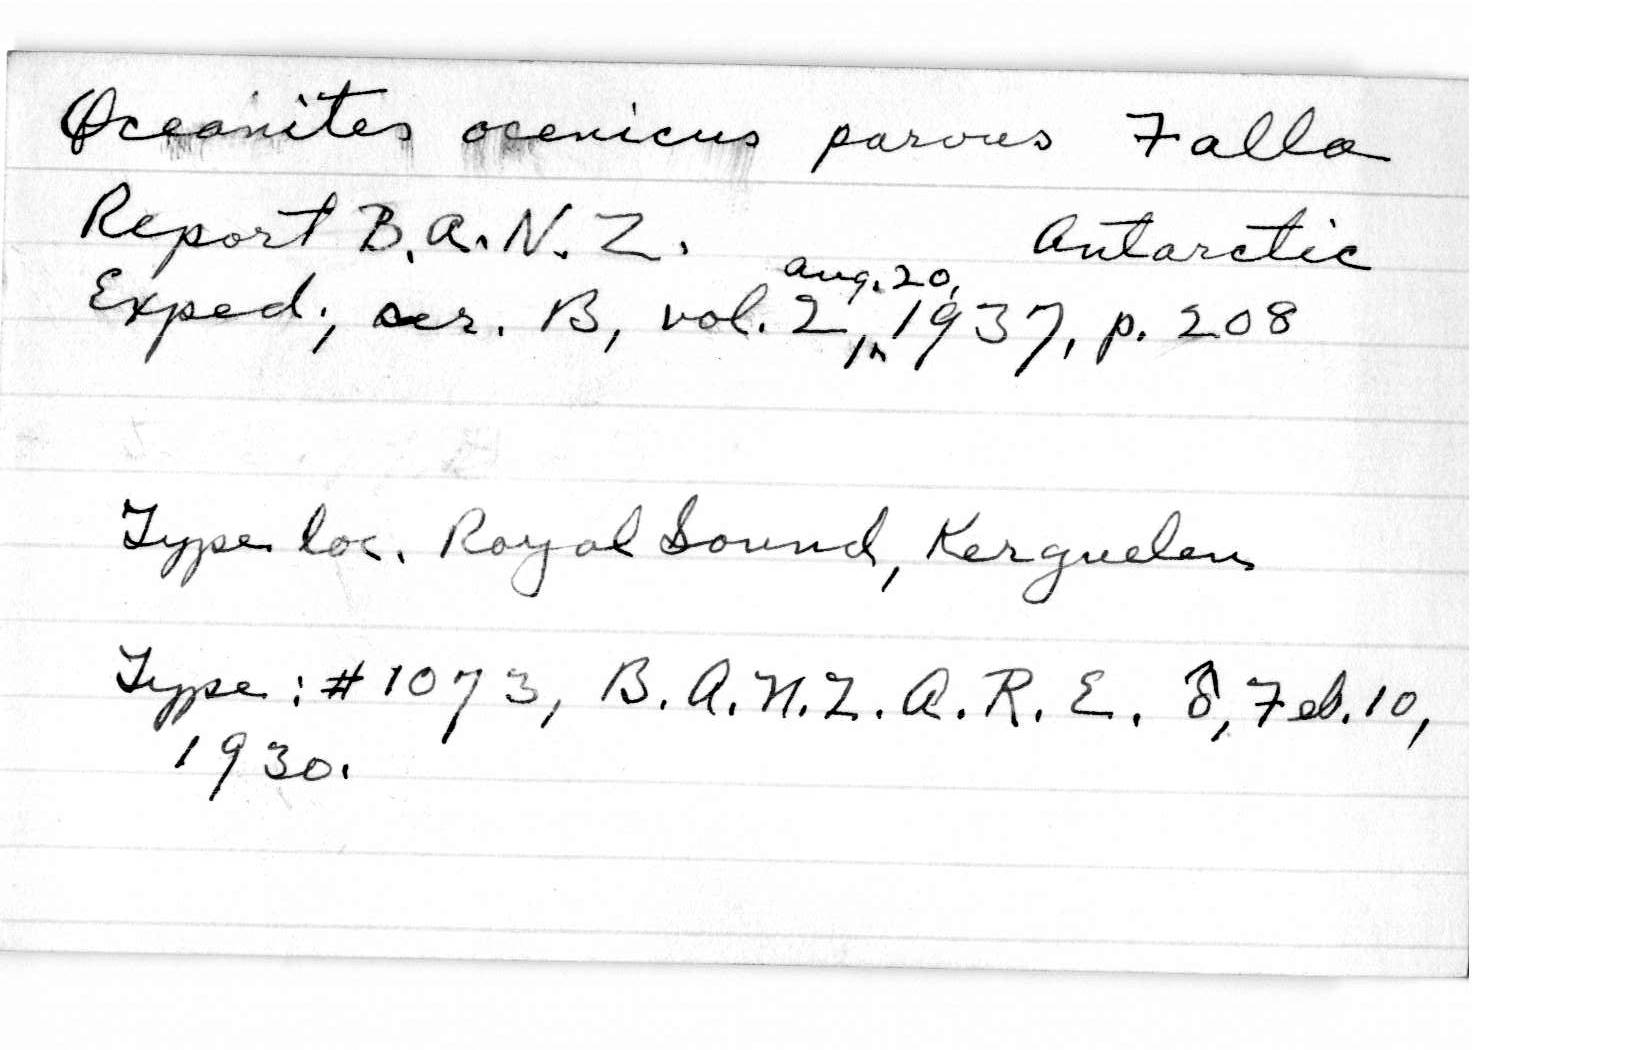 Oceanites ocenicus parvus Falla
Report B.A.N.Z. Antarctic
Exped., ser. B, vol. 2, Aug. 20, 1937, p. 208
Type loc. Royal Sound, Kerguelen
Type: #1073, B.A.N.Z.A.R.E. ♂, Feb. 10,
1930.